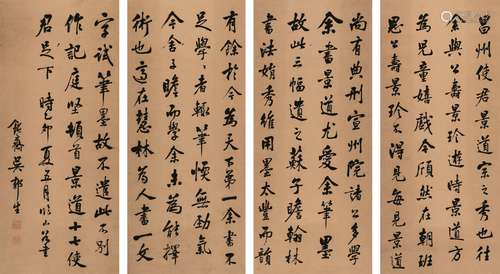 昌州使君景道宗之秀也往
余與公壽景珍遊時景道方
為兒童嬉戲今頎然在朝班
思公壽景珍不得見每見景道
尚有典刑宣州院諸公多學
余書景道尤愛余筆墨
故此三幅遺之蘇子瞻翰林
書法娟秀雖用墨太豐而韻
有餘於今為天下第一余書不
足學〻者輒筆愞無勁氣
今舍子瞻而學余未為能擇
術也適在慧林為人書一文
字試筆墨故不遣此不別
作記庭堅頓首景道十七使
君足下 時己卯夏五月
鈍齋吳郁生